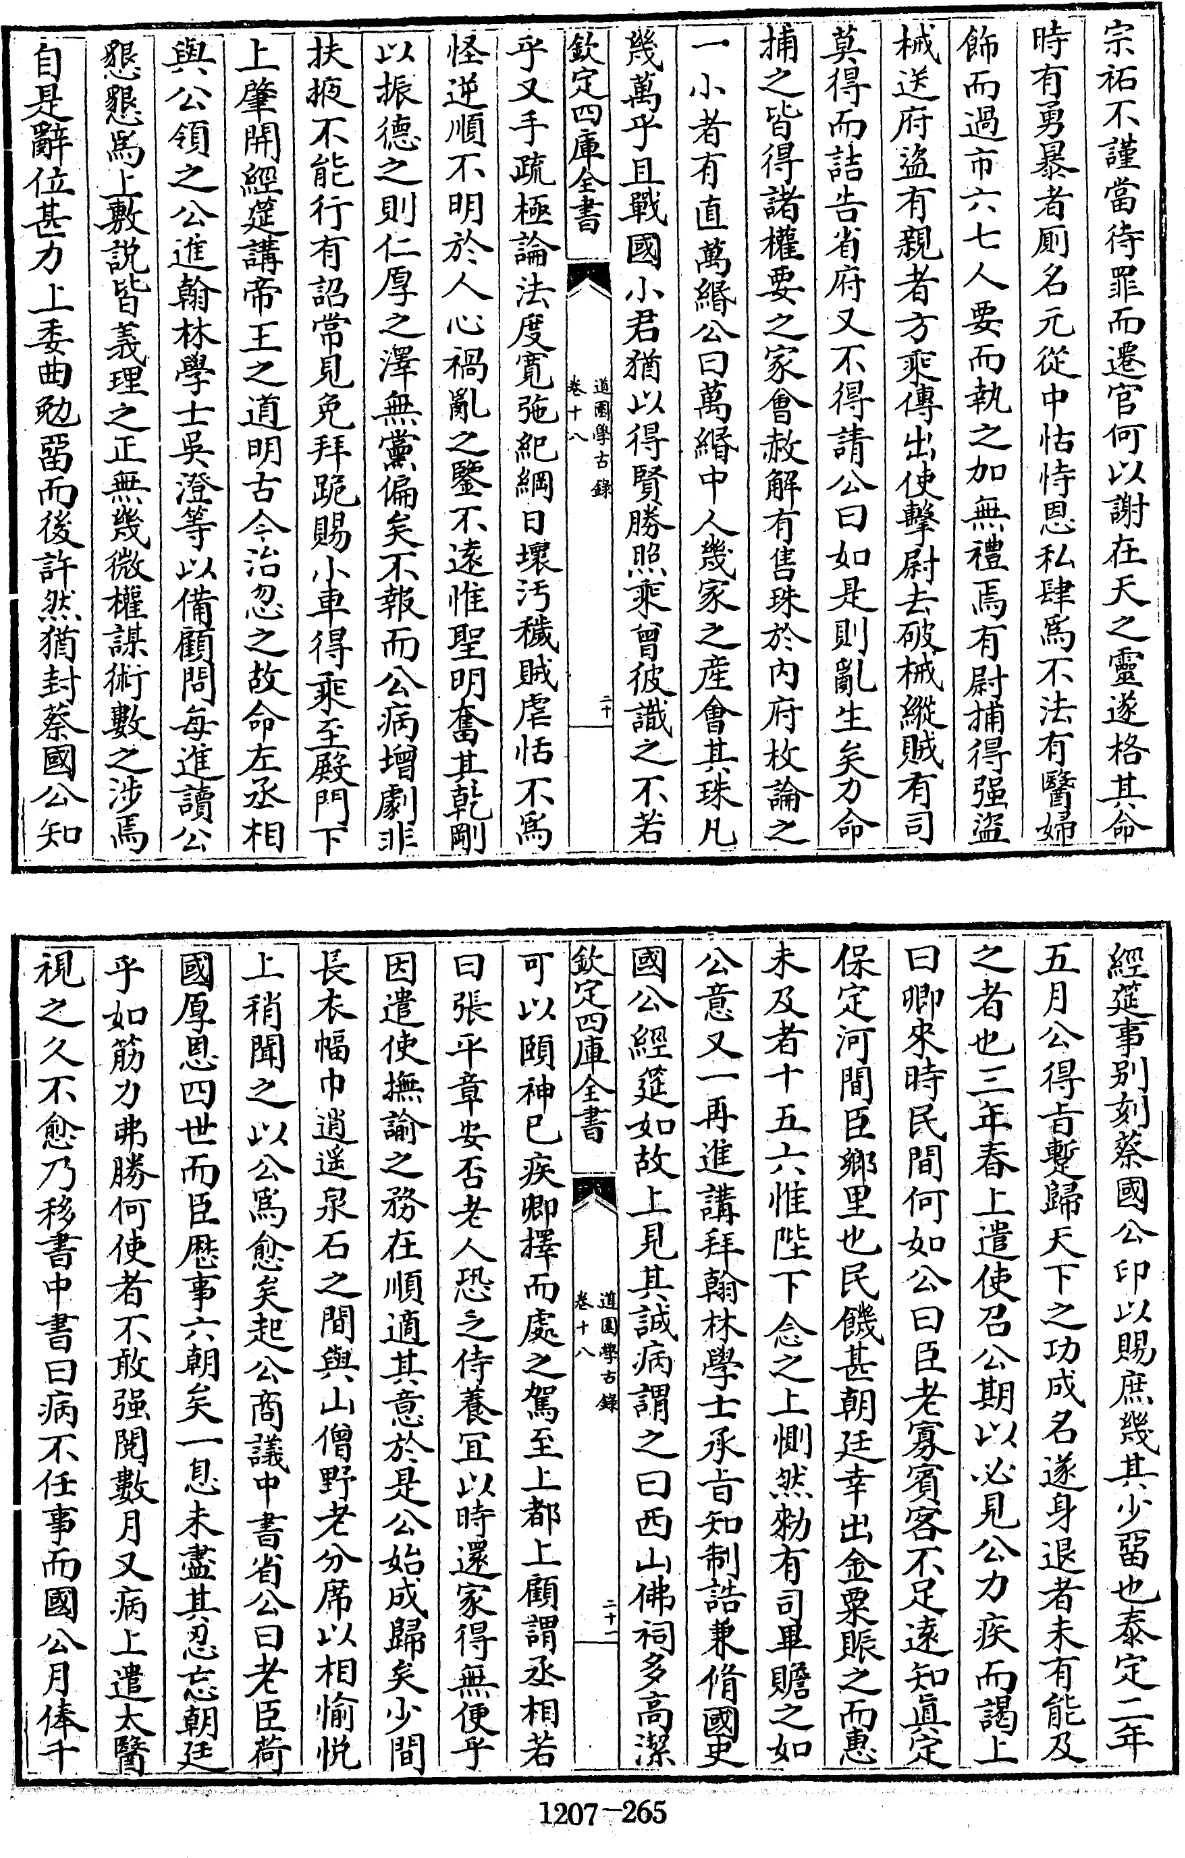 宗祏不謹當待罪而遷官何以謝在天之靈遂格其命
時有勇暴者厠名元從中怙恃恩私肆爲不法有醫婦
飾而過市六七人要而執之加無禮焉有尉捕得强盜
械送府盜有親者方乘傳出使擊尉去破械縱賊有司
莫得而詰告省府又不得請公曰如是則亂生矣力命
捕之皆得諸權要之家會赦解有售珠於內府枚論之
一小者有直萬緡公曰萬緡中人幾家之産會其珠凡
幾萬乎且戰國小君猶以得賢勝照乘曾彼識之不若
欽定四庫全書
道園學古錄
卷十八
二十
乎又手疏極論法度寬弛紀綱日壞汚穢賊虐恬不爲
怪逆順不明於人心禍亂之鑒不遠惟聖明奮其乾剛
以振德之則仁厚之澤無黨偏矣不報而公病增劇非
扶掖不能行有詔常見免拜跪賜小車得乘至殿門下
上肇開經筵講帝王之道明古今治忽之故命左丞相
與公領之公進翰林學士吳澄等以備顧問每進讀公
懇懇爲上敷說皆義理之正無幾微權謀術數之涉焉
自是辭位甚力上委曲勉留而後許然猶封蔡國公知
經筵事别刻蔡國公印以賜庶幾其少留也泰定二年
五月公得旨蹔歸天下之功成名遂身退者未有能及
之者也三年春上遣使召公期以必見公力疾而謁上
曰卿來時民間何如公曰臣老寡賓客不足遠知眞定
保定河間臣鄉里也民饑甚朝廷幸出金粟賑之而惠
未及者十五六惟陛下念之上惻然勑有司畢贍之如
公意又一再進講拜翰林學士承旨知制誥兼脩國史
國公經筵如故上見其誠病謂之曰西山佛祠多高潔
欽定四庫全書
道園學古錄
卷十八
二十一
可以頤神已疾卿擇而處之駕至上都上顧謂丞相若
曰張平章安否老人恐乏侍養宜以時還家得無便乎
因遣使撫諭之務在順適其意於是公始成歸矣少間
長衣幅巾逍遥泉石之間與山僧野老分席以相愉悅
上稍聞之以公爲愈矣起公商議中書省公曰老臣荷
國厚恩四世而臣歴事六朝矣一息未盡其忍忘朝廷
乎如筋力弗勝何使者不敢强閱數月又病上遣太醫
視之久不愈乃移書中書曰病不任事而國公月俸千
1207-265